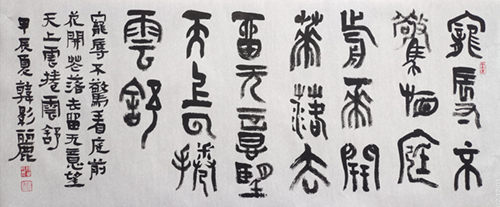 寵辱不
驚看庭
前花開
花落去
留无意望
天上云捲
雲舒
寵辱不驚看庭前
花開花落去留无意望
天上雲捲雲舒
甲辰夏韓影麗